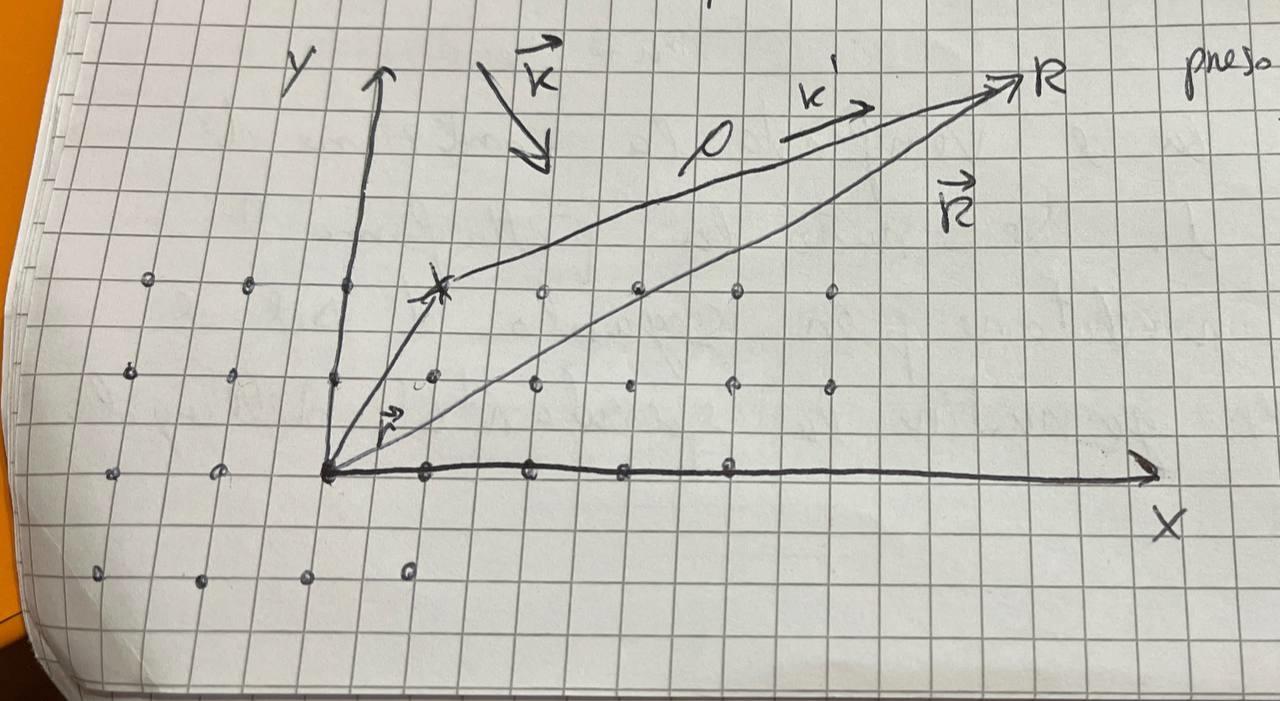 y
k⃗
k'
R
preso
ρ
R⃗
r⃗
x